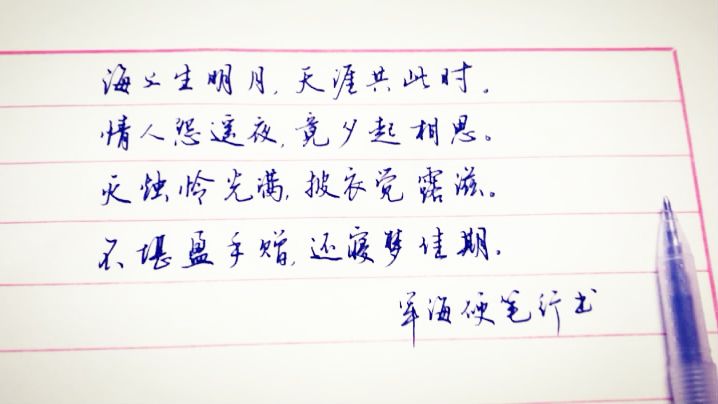 海上生明月,天涯共此时。
情人怨遥夜,竟夕起相思。
灭烛怜光满,披衣觉露滋。
不堪盈手赠,还寝梦佳期。
军海硬笔行书